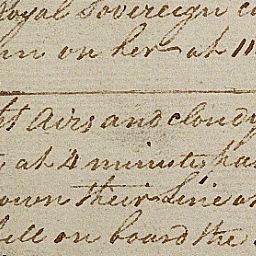 Royal Sovereign
on her at 11
Airs and cloudy
at 4 minutes
own their Line
on board the